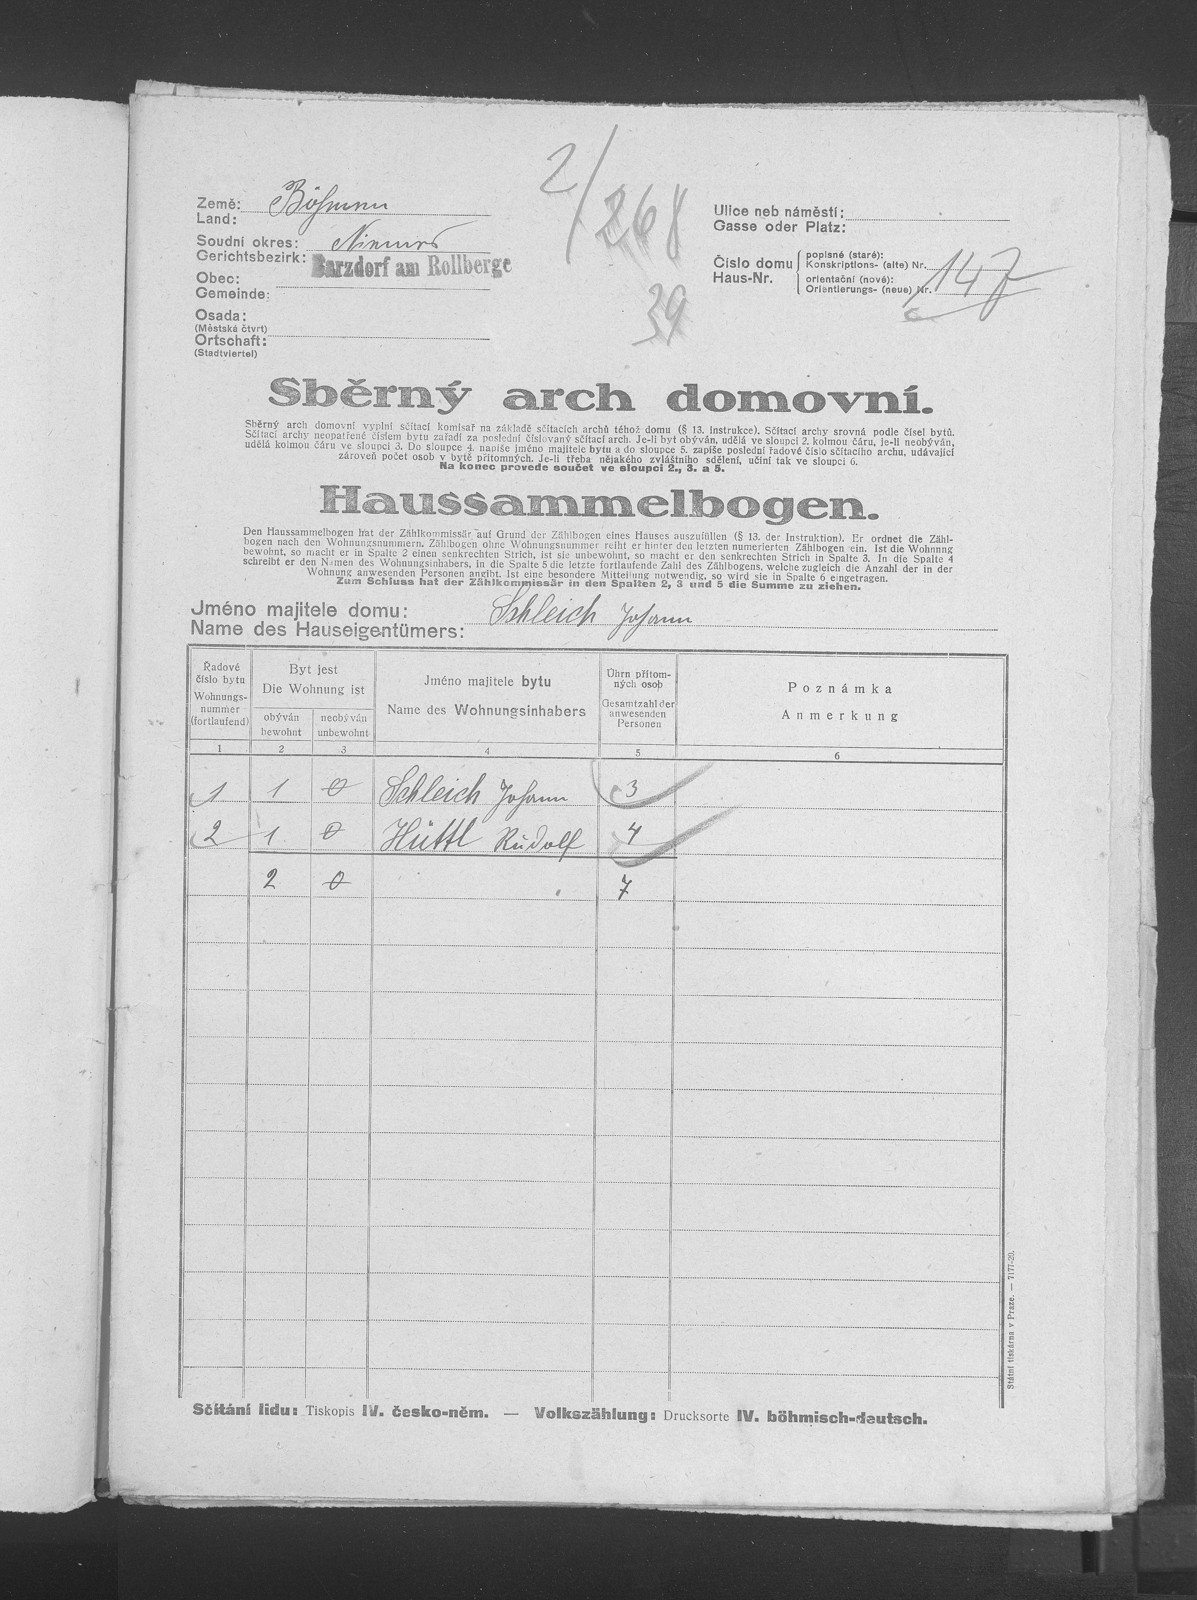 2/268
39
Země: Böhmen
Land:
Soudní okres: Niemes
Gerichtsbezirk:
Barzdorf am Rollberge
Obec:
Gemeinde:
Osada:
(Městská čtvrt)
Ortschaft:
(Stadtviertel)
Ulice neb náměstí:
Gasse oder Platz:
Číslo domu
Haus-Nr.
popisné (staré):
Konskriptions- (alte) Nr. 147
orientační (nové):
Orientierungs- (neue) Nr.
Sběrný arch domovní.
Sběrný arch domovní vyplní sčítací komisař na základě sčítacích archů téhož domu (§ 13. instrukce). Sčítací archy srovná podle čísel bytů.
Sčítací archy neopatřené číslem bytu zařadí za poslední číslovaný sčítací arch. Je-li byt obýván, udělá ve sloupci 2. kolmou čáru, je-li neobýván,
udělá kolmou čáru ve sloupci 3. Do sloupce 4. napíše jméno majitele bytu a do sloupce 5. zapíše poslední řadové číslo sčítacího archu, udávající
zároveň počet osob v bytě přítomných. Je-li třeba nějakého zvláštního sdělení, učiní tak ve sloupci 6.
Na konec provede součet ve sloupci 2., 3. a 5.
Haussammelbogen.
Den Haussammelbogen hat der Zählkommissär auf Grund der Zählbogen eines Hauses auszufüllen (§ 13. der Instruktion). Er ordnet die Zähl-
bogen nach den Wohnungsnummern. Zählbogen ohne Wohnungsnummer reiht er hinter den letzten numerierten Zählbogen ein. Ist die Wohnung
bewohnt, so macht er in Spalte 2 einen senkrechten Strich, ist sie unbewohnt, so macht er den senkrechten Strich in Spalte 3. In die Spalte 4
schreibt er den Namen des Wohnungsinhabers, in die Spalte 5 die letzte fortlaufende Zahl des Zählbogens, welche zugleich die Anzahl der in der
Wohnung anwesenden Personen angibt. Ist eine besondere Mitteilung notwendig, so wird sie in Spalte 6 eingetragen.
Zum Schluss hat der Zählkommissär in den Spalten 2, 3 und 5 die Summe zu ziehen.
Jméno majitele domu: Schleich Johann
Name des Hauseigentümers:
Řadové
číslo bytu
Wohnungs-
nummer
(fortlaufend)
Byt jest
Die Wohnung ist
obýván
bewohnt
neobýván
unbewohnt
Jméno majitele bytu
Name des Wohnungsinhabers
Úhrn přítom-
ných osob
Gesamtzahl der
anwesenden
Personen
Poznámka
Anmerkung
1 2 3 4 5 6
1 1 0 Schleich Johann 3
2 1 0 Hüttl Rudolf 4
2 0 7
Státní tiskárna v Praze. — 7177-20.
Sčítání lidu: Tiskopis IV. česko-něm. — Volkszählung: Drucksorte IV. böhmisch-deutsch.